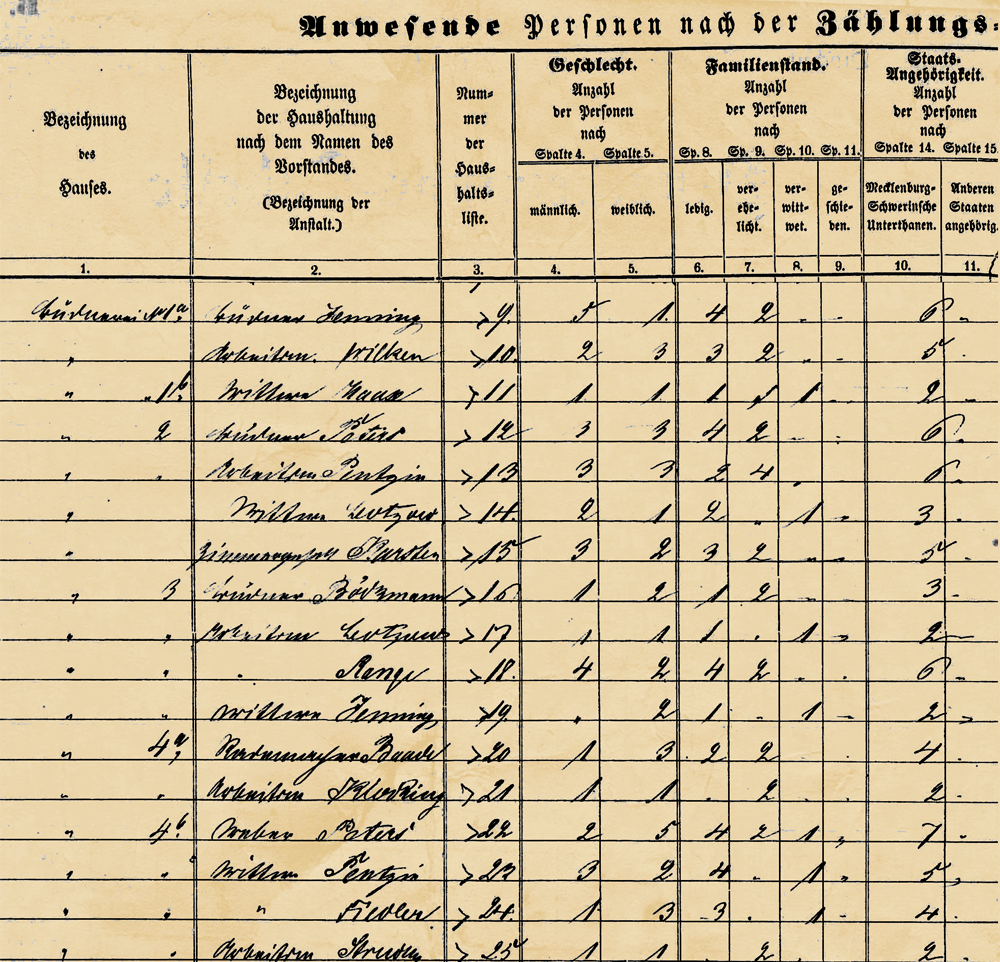 Anwesende Personen nach der Zählungs-
Bezeichnung
des
Hauses.
Bezeichnung
der Haushaltung
nach dem Namen des
Vorstandes.
(Bezeichnung der
Anstalt.)
Num-
mer
der
Haus-
halts-
liste.
Geschlecht.
Anzahl
der Personen
nach
Spalte 4. Spalte 5.
männlich. weiblich.
Familienstand.
Anzahl
der Personen
nach
Sp. 8. Sp. 9. Sp. 10. Sp. 11.
ledig.
ver-
ehe-
licht.
ver-
witt-
wet.
ge-
schie-
den.
Staats-
Angehörigkeit.
Anzahl
der Personen
nach
Spalte 14. Spalte 15
Mecklenburg-
Schwerinsche
Unterthanen.
Anderen
Staaten
angehörig.
1. 2. 3. 4. 5. 6. 7. 8. 9. 10. 11.
Büdnerei No 1a. Büdner Henning 9. 5 1. 4 2 - - 6 -
" Arbeitsm. Wilken 10. 2 3 3 2 - - 5 -
" " 1b. Wittwe Haax 11 1 1 1 1 - 2 -
" 2 Büdner Peters 12 3 3 4 2 - - 6 -
" " Arbeitsm Pentzin 13 3 3 2 4 - 6 -
" Wittwe 14. 2 1 2 - 1 - 3 -
" Zimmergesell Karsten 15 3 2 3 2 - - 5 -
" 3 Büdner Bödzmann 16 1 2 1 2 - - 3 -
" " Arbeitsm 17 1 1 1 - 1 - 2 -
" " " Range 18. 4 2 4 2 - - 6 -
" " Wittwe Henning 19. - 2 1 - 1 - 2 -
" 4a. Rademacher Baade 20 1 3 2 2 - - 4 -
" " Arbeitsm Klocking 21 1 1 - 2 - - 2 -
" 4b. Weber Peters 22 2 5 4 2 1 " 7 -
" " Wittwe Pentzin 23 3 2 4 - 1 " 5 -
" " " Fiedler 24. 1 3 3 - 1 - 4 -
" " Arbeitsm 25 1 1 2 - - 2 -